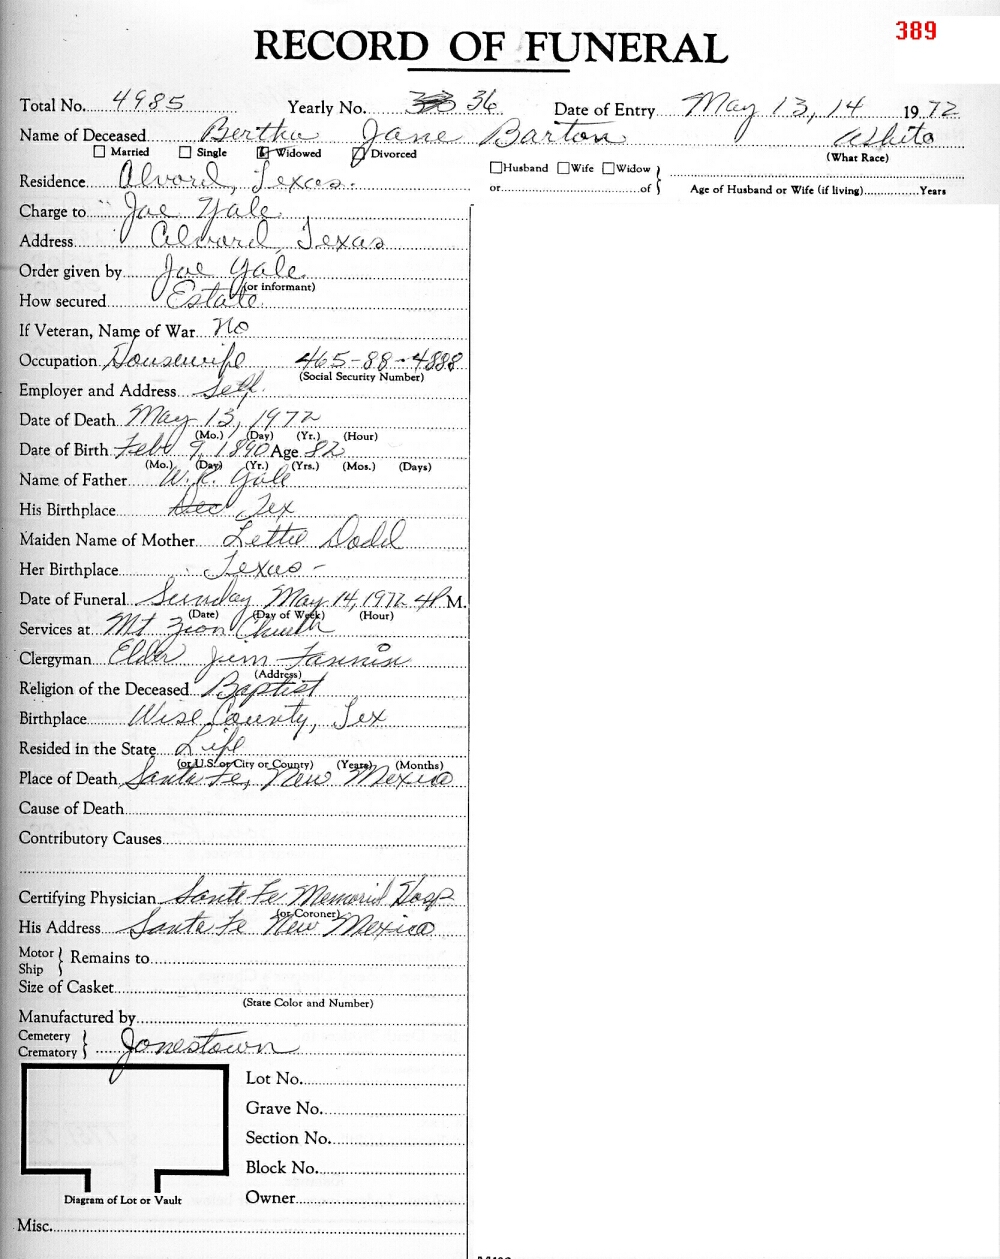 389
RECORD OF FUNERAL
Total No. 4985 Yearly No. 36 Date of Entry May 13, 14 1972
Name of Deceased Bertha Jane Barton White
Married Single Widowed Divorced (What Race)
Husband Wife Widow
Residence Alvord, Texas.
or of Age of Husband or Wife (if living) Years
Charge to Joe Yale
Address Alvord, Texas
Order given by Joe Yale
(or informant)
How secured Estate
If Veteran, Name of War No
Occupation Housewife 465-88-4888
(Social Security Number)
Employer and Address Self.
Date of Death May 13, 1972
(Mo.) (Day) (Yr.) (Hour)
Date of Birth Feb. 9, 1890 Age 82
(Mo.) (Day) (Yr.) (Yrs.) (Mos.) (Days)
Name of Father W.R. Gale
His Birthplace Dec Tex
Maiden Name of Mother Lettie Dodd
Her Birthplace Texas -
Date of Funeral Sunday May 14, 1972 4P M.
(Date) (Day of Week) (Hour)
Services at Mt Zion Church
Clergyman Elder Jim Fannin
(Address)
Religion of the Deceased Baptist
Birthplace Wise County, Tex
Resided in the State Life
(or U.S. or City or County) (Years) (Months)
Place of Death Santa Fe, New Mexico
Cause of Death
Contributory Causes
Certifying Physician Santa Fe Memorial Hosp
(or Coroner)
His Address Santa Fe New Mexico
Motor Ship } Remains to
Size of Casket
(State Color and Number)
Manufactured by
Cemetery Crematory } Jonestown
Lot No.
Grave No.
Section No.
Block No.
Diagram of Lot or Vault
Owner
Misc.